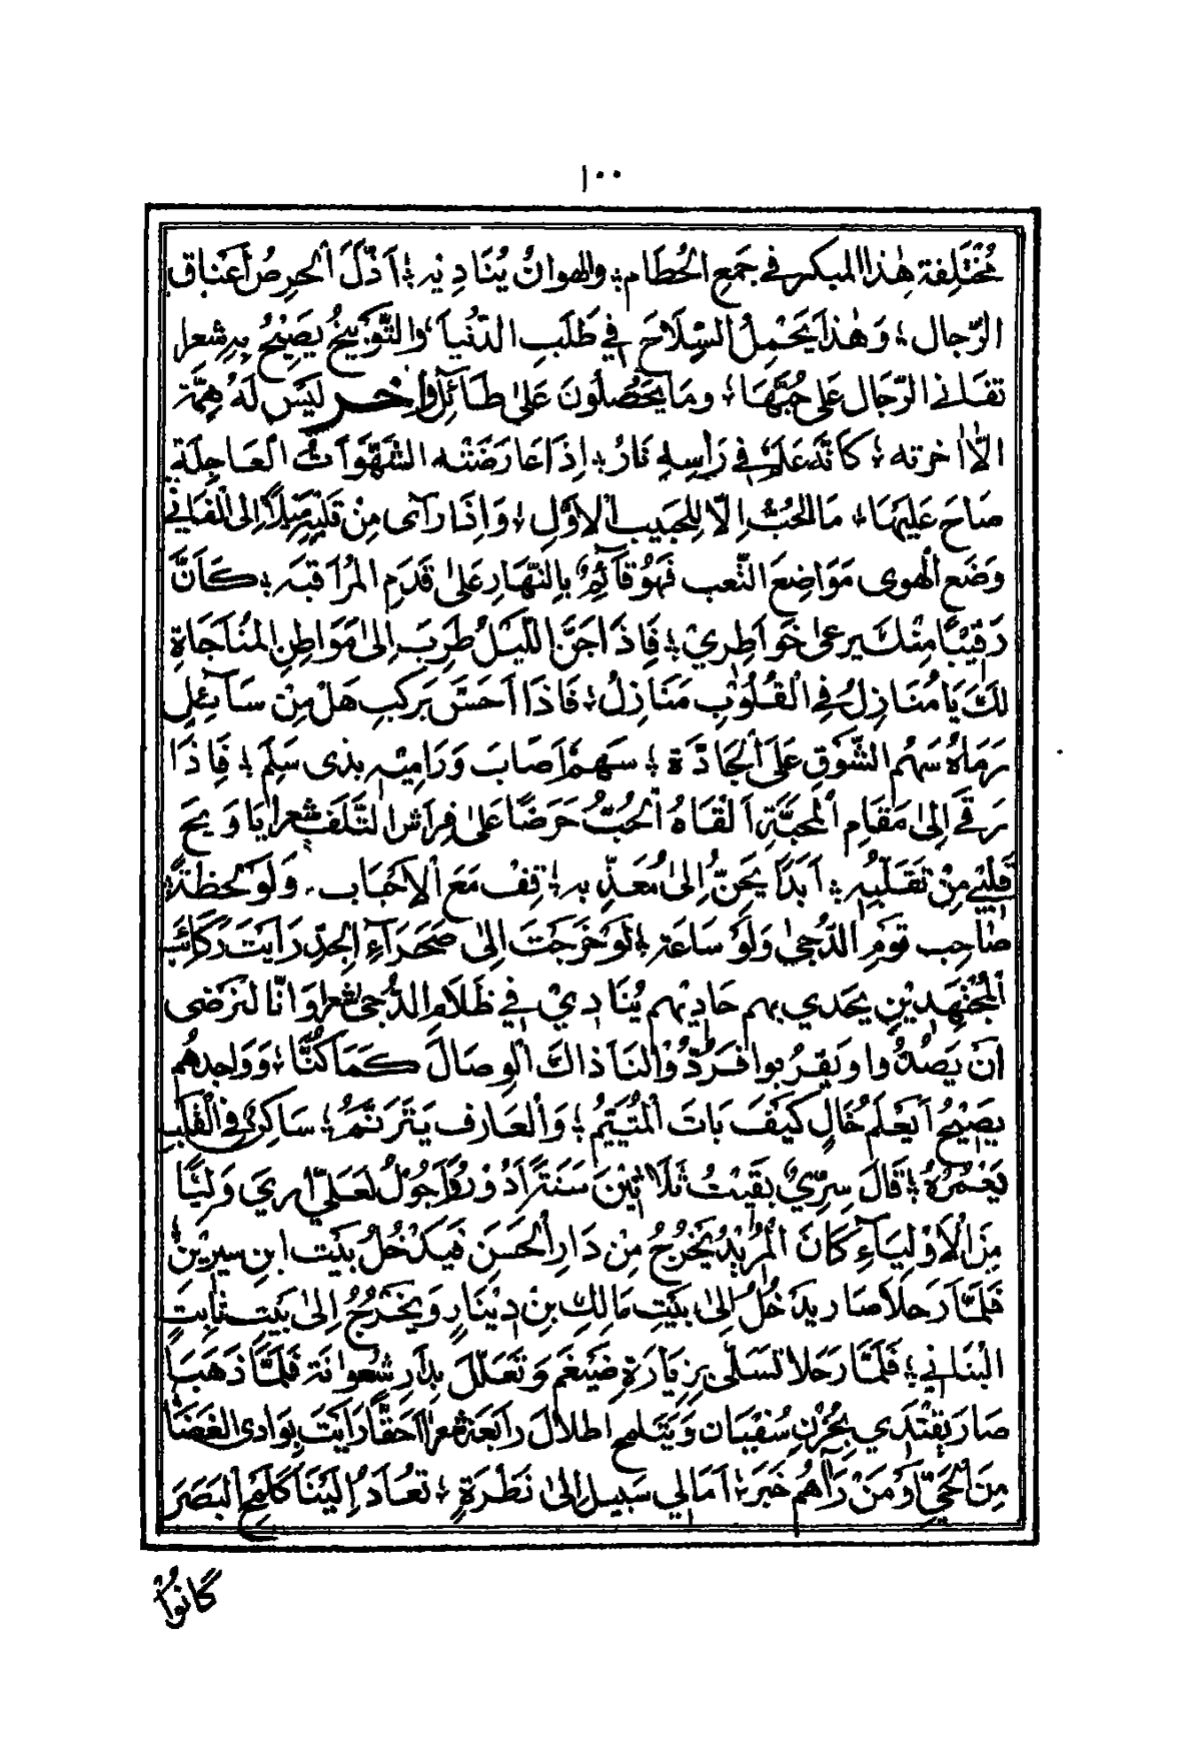 ١٠٠
مُخْتَلِفة هٰذا المبكر في جَمعِ الحُطَام ؛ والهوانُ يُنَادِيْهِ ؛ اَذَلَّ الْحِرصُ اَعْنَاقَ
الرِّجال ؛ وَهٰذا يَحْمِلُ السِّلَاحَ في طَلَبِ الدُّنْيَا ؛ والتَّوْبِيْخُ يَصِيْحُ بِهِ شعرا
تَفَانى الرِّجَال عَلى حُبِّهَا ؛ ومَا يَحْصُلُونَ عَلىٰ طَائِلٍ وَاٰخر لَيْسَ لَهُ هِمَّة
الّا اٰخرته ؛ كَاَنَّهُ عَلَمٌ في رَاسِهٖ نَارُ ؛ اِذَا عَارَضَتْه الشَّهَوَاتُ العَاجِلَة
صَاحَ عَلَيْهَا ؛ مَا الحُبُّ اِلَّا لِلحَبِيْبِ الْاَوَّلِ ؛ وَاِذَا رَآى مِنْ قَلْبِهِ مَيْلًا اِلى الْفَانى
وَضَع الْهوى مَوَاضِعَ النّعب فَهُوَ قَآئِمٌ بِالنَّهَارِ عَلىٰ قَدَمِ المُرَاقبَه ؛ كَاَنَّ
رَقِيْبًا مِنْكَ يرعىٰ خَوَاطِرِيْ ؛ فَاِذَا جَنَّ اللَّيْلُ طَرِبَ اِلىٰ مَوَاطِنِ المُنَاجَاةِ
لَكَ يَا مُنَازِلُ فِى الْقُلُوْبِ مَنَازِلُ ؛ فَاِذَا اَحَسَّ بَركبِ هَلْ مِنْ سَآئِلٍ
رَمَاهُ سَهْمُ الشَّوْقِ عَلَى الْجَادَّة ؛ سَهْمٌ اَصَابَ وَرَامِيْهِ بذى سَلِمَ ؛ فَاِذَا
رَقَى اِلىٰ مَقَامِ الْمَحَبَّةِ اَلْقَاهُ الْحُبُّ حَرَضًا عَلىٰ فِرَاشِ التَّلَفِ شعر يَا وَيحَ
قَلْبِيْ مِنْ تَقَلُّبِهٖ ؛ اَبَدًا يَحِنُّ اِلىٰ مُعَذِّبِهِ ؛ قِفْ مَعَ الْاَحْبَابِ ، وَلَوْ لَحظَةً ؛
صَاحِب قومَ الدُّجىٰ وَلَوْ سَاعَة ؛ لَوْ خَرَجْتَ اِلىٰ صَحَرَآءِ الجِدِّ رَاَيتَ رَكَائِبَ
الْمُجْتَهِدِيْنِ يحدي بهم حَادِيْهم يُنَادِيْ في ظَلَامِ الدُّجىٰ شعر وَانّا لنرْضى
اَنْ يَصُدُّوا وَيَقرُبوا فَرُدُّوْا لنَا ذاكَ الْوِصَالَ كَمَا كُنَّا ؛ وَوَاجِدهُم
يَصِيْحُ اَيَعْلَمُ خَالٍ كَيْفَ بَاتَ الْمُتَيَّمُ ؛ وَالعَارِف يَتَرَنَّمُ ؛ سَاكِنٌ فى الْقَلْبِ
يَعْمُرُهُ ؛ قَالَ سِرِّيٌ بَقِيْتُ ثَلَاثِيْنَ سَنَةً اَدُوْرُ وَاَجُوْلُ لَعَلِّيْ اَرىٰ وَلِيًّا
مِنَ الْاَوْلِيَآءِ كَانَ المُرِيْدُ يَخْرُجُ مِنْ دَارِ الْحَسَنَ فَيَدْخُلُ بَيْتَ ابنِ سِيرِيْنَ ؛
فَلَمَّا رَحَلَا صَار يدَخُلُ اِلىٰ بَيْتِ مَالِكِ بنِ دِيْنَارٍ وَيَخْرُجُ اِلىٰ بَيْت ثَابِتٍ
البْنَاني ؛ فَلَمَّا رَحَلا تَسَلّى بِزِيَارَةِ ضَيْغَم وَتَعَلَّلَ بِدَارِ شُعوانَة فَلَمَّا ذَهَبَا
صَار يَقْتَدِي بِحُزْنِ سُفيَان وَيَتلَمح اطلالَ رَابِعَة شعر اَحَقًّا رَاَيتَ بِوَادى الغَضَا
مِنَ الْحَيِّ اَوْ مَنْ رَاٰهُمْ خَبَرَ ؛ اَمَا لي سَبِيل اِلىٰ نَظْرَةٍ ؛ تُعَادُ اِلَيْنَا كَلَمْحِ الْبَصَرَ
كانُوْا